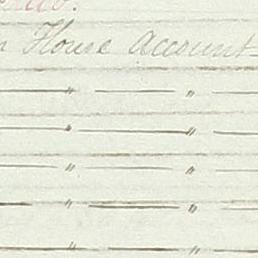 House Account
— " — " —
— " — " —
— " — " —
— " — " —
— " — " —